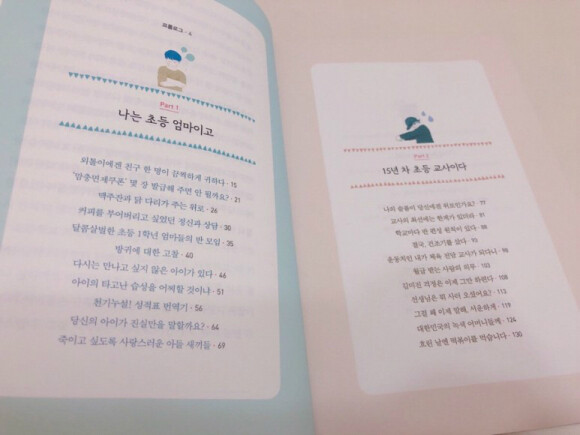 프롤로그 · 4
Part 1
나는 초등 엄마이고
외톨이에겐 친구 한 명이 끔찍하게 귀하다 · 15
'암충면제쿠폰' 몇 장 발급해 주면 안 될까요? · 21
맥주잔과 닭 다리가 주는 위로 · 26
커피를 부어버리고 싶었던 정신과 상담 · 30
달콤살벌한 초등 1학년 엄마들의 반 모임 · 35
방귀에 대한 고찰 · 40
다시는 만나고 싶지 않은 아이가 있다 · 46
아이의 타고난 습성을 어찌할 것이냐 · 51
천기누설! 성적표 번역기 · 56
당신의 아이가 진실만을 말할까요? · 64
죽이고 싶도록 사랑스러운 아들 새끼들 · 69
Part 2
15년 차 초등 교사이다
나의 웃음이 당신에겐 위로인가요? · 73
교사의 최선에는 한계가 있더라 · 83
학교마다 반 편성 원칙이 있다 · 88
결국, 건조기를 샀다 · 95
운동치인 내가 체육 전담 교사가 되다니 · 98
월급 받는 사람의 의무 · 102
김미진 걱정은 이제 그만 하련다 · 108
선생님은 뭐 사러 오셨어요? · 113
그걸 왜 이제 말해, 서운하게 · 119
대한민국의 녹색 어머니들께 · 124
흐린 날엔 떡볶이를 먹습니다 · 130